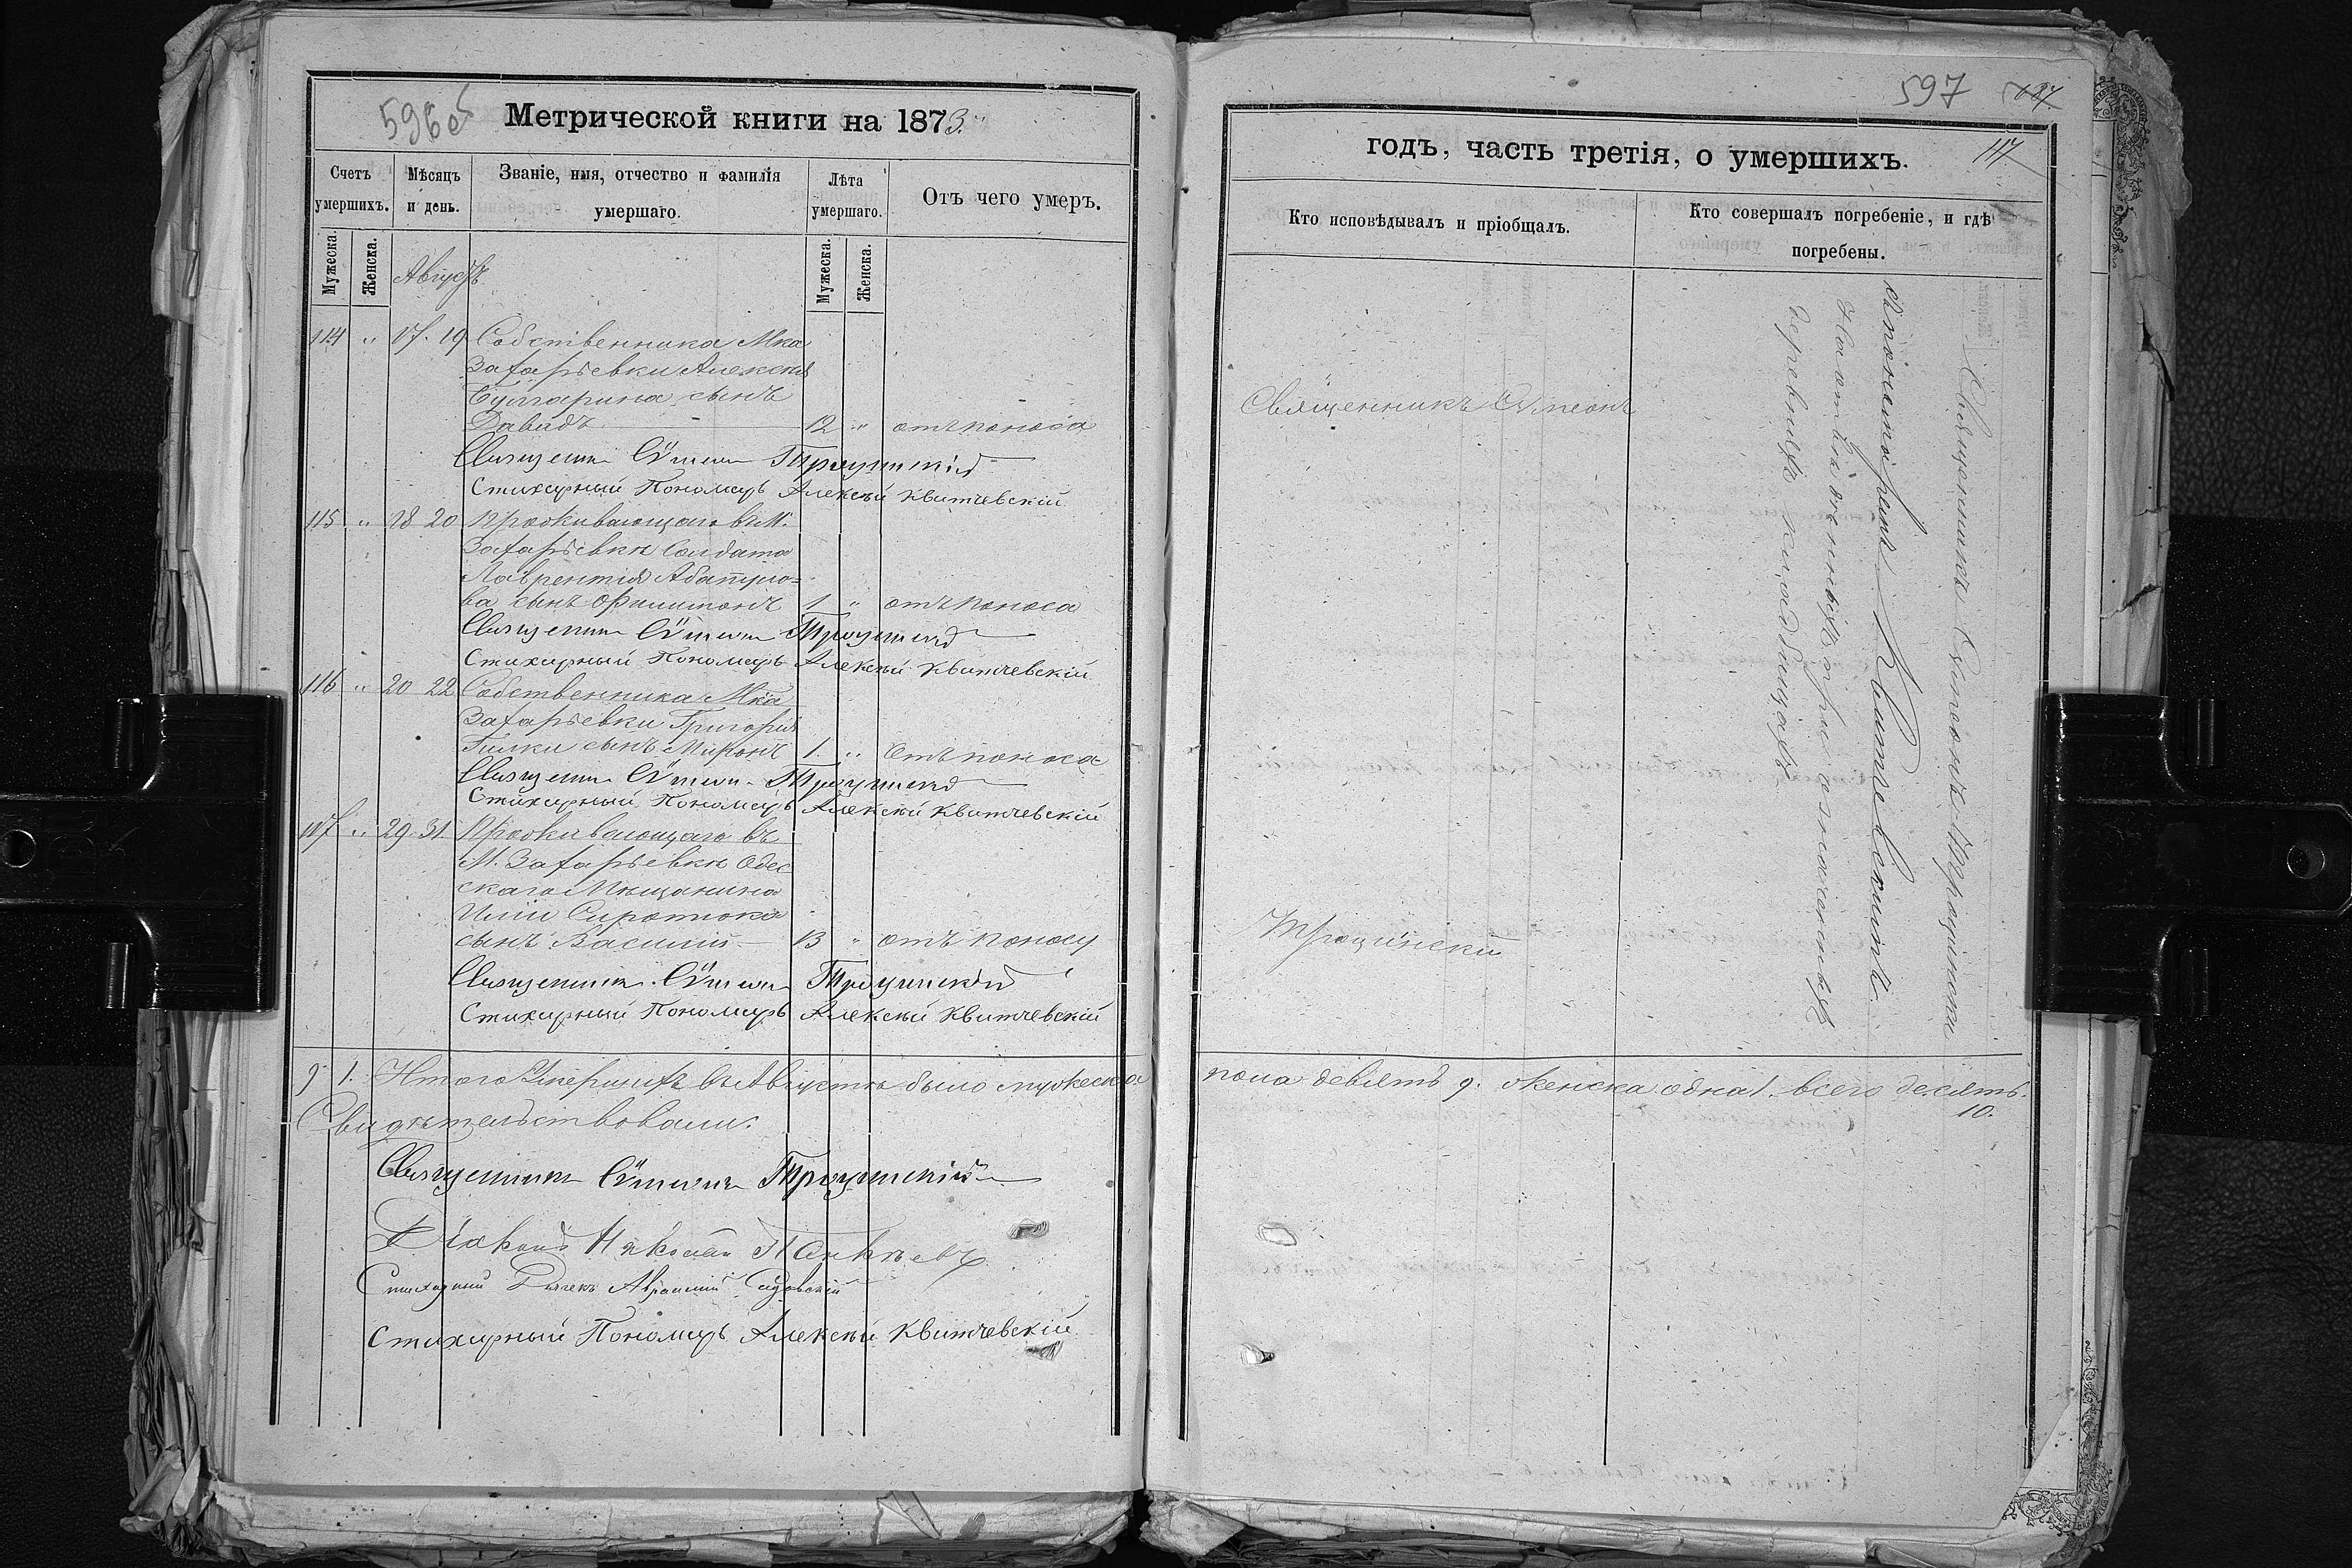 596об
Метрической книги на 1873.
Счетъ умершихъ.
Мѣсяцъ и день.
Званіе, имя, отчество и фамилія умершаго.
Лѣта умершаго.
Отъ чего умеръ.
Мужеска.
Женска.
Августъ
Мужеска.
Женска.
114 " 17. 19 Собственника Мка
Захарьевки Алексѣя
Булгарина сынъ
Давидъ 12 " отъ поноса
Священникъ Сѵмеонъ Трощинскій
Стихарный Пономарь Алексѣй Квитчевскій
115 " 18 20 Проживающаго въ М.
Захарьевкѣ Солдата
Лаврентія
ва сынъ Филимонъ 1 " отъ поноса
Священникъ Сѵмеонъ Трощинскій
Стихарный Пономарь Алексѣй Квитчевскій
116 " 20 22 Собственника Мка
Захарьевки Григорія
Гилки сынъ Миронъ 1 " отъ поноса
Священникъ Сѵмеонъ Трощинскій
Стихарный Пономарь Алексѣй Квитчевскій
117 " 29. 31. Проживающаго въ
М. Захарьевкѣ Одес
скаго Мѣщанина
Иліи Сиротюка
сынъ Василій 13 " отъ поносу
Священникъ Сѵмеонъ Трощинскій
Стихарный Пономарь Алексѣй Квитчевскій
9 1. Итого Умершихъ въ Августѣ было мужеска
Свидѣтельствовали:
Священникъ Сѵмеонъ Трощинскій
Діаконъ Николай
Стихарный Дьячекъ Авраамій
Стихарный Пономарь Алексѣй Квитчевскій
597
117
годъ, часть третія, о умершихъ.
Кто исповѣдывалъ и пріобщалъ.
Кто совершалъ погребеніе, и гдѣ погребены.
Священникъ Сѵмеонъ
Трощинскій
Священникъ Симеонъ Трощинскій
съ пономаремъ Квитчевскимъ
на отведенныхъ при означенныхъ
деревняхъ кладбищахъ
пола девять 9. женска одна 1. всего десять.
10.